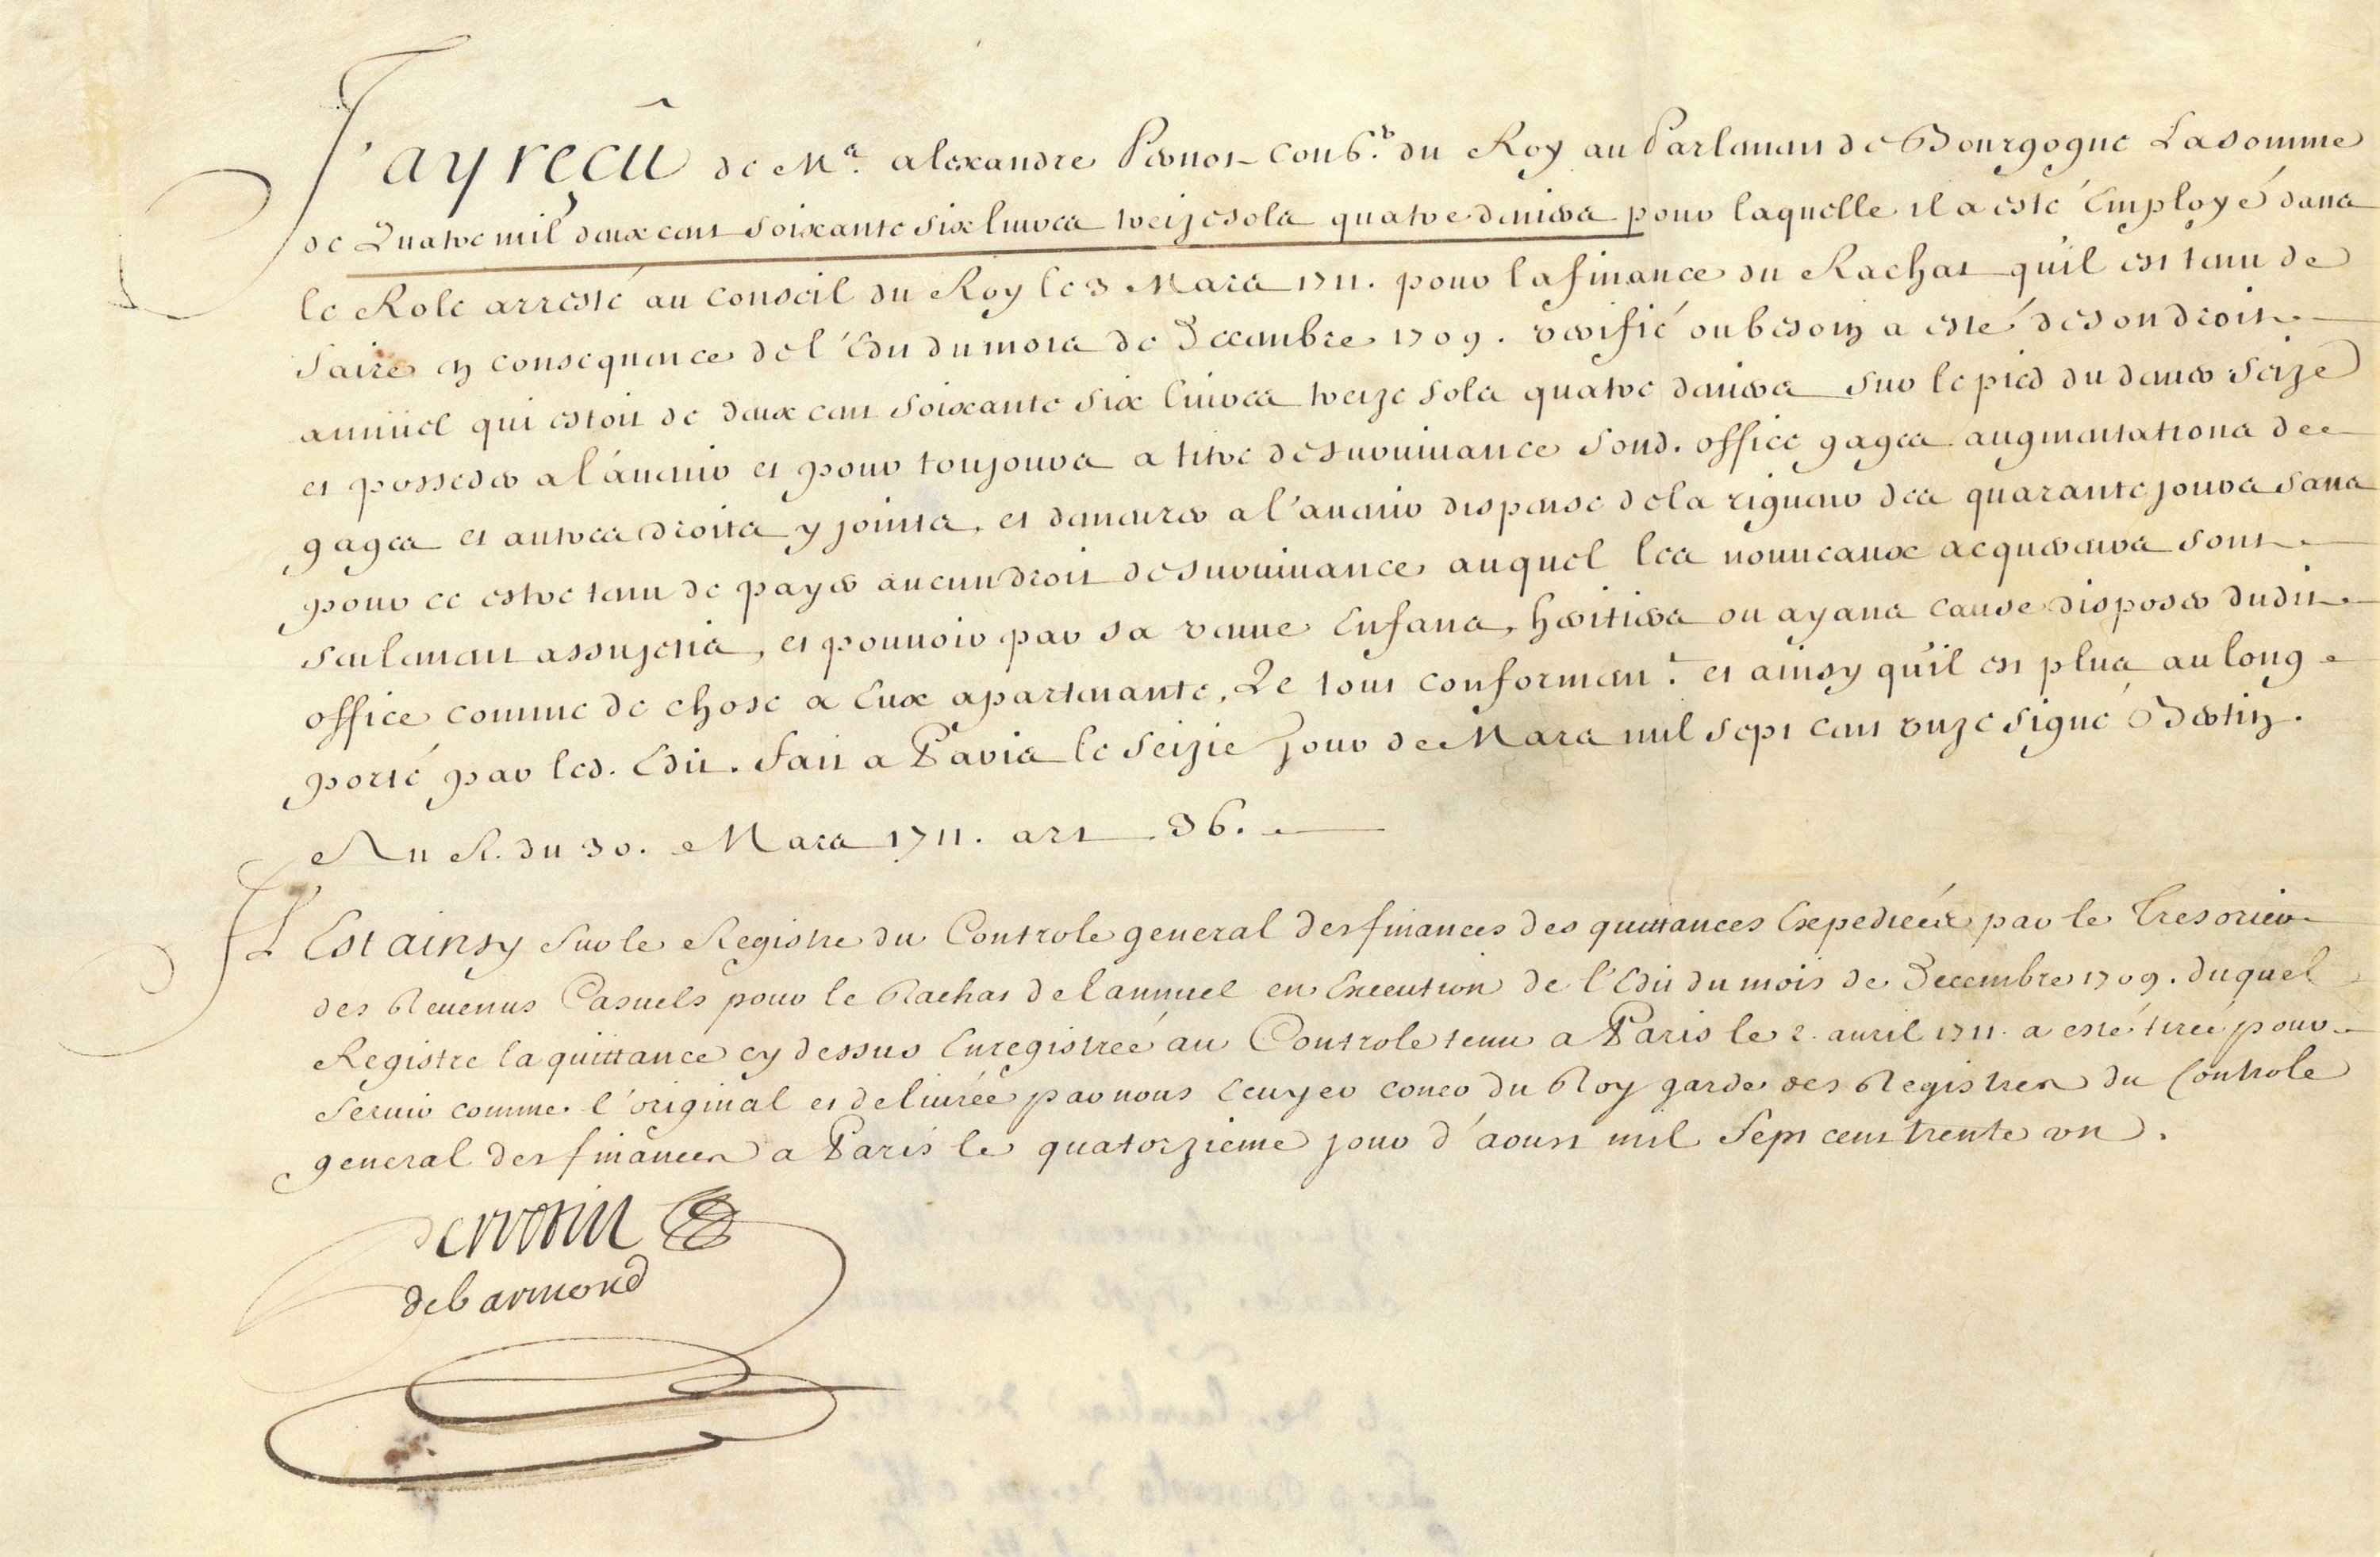 J'ay reçû de Me. alexandre Pernot Conser. du Roy au Parlement de Bourgogne La somme
de Quatre mil deux cent soixante six livres treize sols quatre deniers pour laquelle il a esté Employé dans
le Role arresté au Conseil du Roy le 3 Mars 1711. pour la finance du Rachat qu'il est tenu de
faire en consequence de l'Edit du mois de Decembre 1709. verifié ou besoin a esté de son droit
annüel qui estoit de deux cent soixante six livres treize sols quatre deniers sur le pied du denier seize
et posseder a l'avenir et pour toujours a titre de survivance sond. office gages augmentations de
gages et autres droits y joints, et demeurer a l'avenir dispensé de la rigueur des quarante jours sans
pour ce estre tenu de payer aucun droit de survivance auquel les nouveaux acquereurs sont
seulement assujetis, et pouvoir par sa veuve Enfans, heritiers ou ayans cause disposer dudit
office comme de chose a Eux apartenante, Le tout conformemt. et ainsy qu'il est plus au long
porté par led. Edit. fait a Paris le seizie jour de Mars mil sept cent onze signé Bertin.
Au R. du 30. Mars 1711. art 36.
Il Est ainsy sur le Registre du Controle general des finances des quittances Expedieés par le Tresorier
des Revenus Casuels pour le Rachat de lannuel en Execution de l'Edit du mois de Decembre 1709. duquel
Registre la quittance cy dessus Enregistreé au Controle tenu a Paris le 2. avril 1711. a esté tireé pour
servir comme l'original et delivrée par nous Ecuyer Coner du Roy garde des Registres du Controle
general des finances a Paris le quatorzieme jour d'aoust mil sept cent trente un.
debarmond